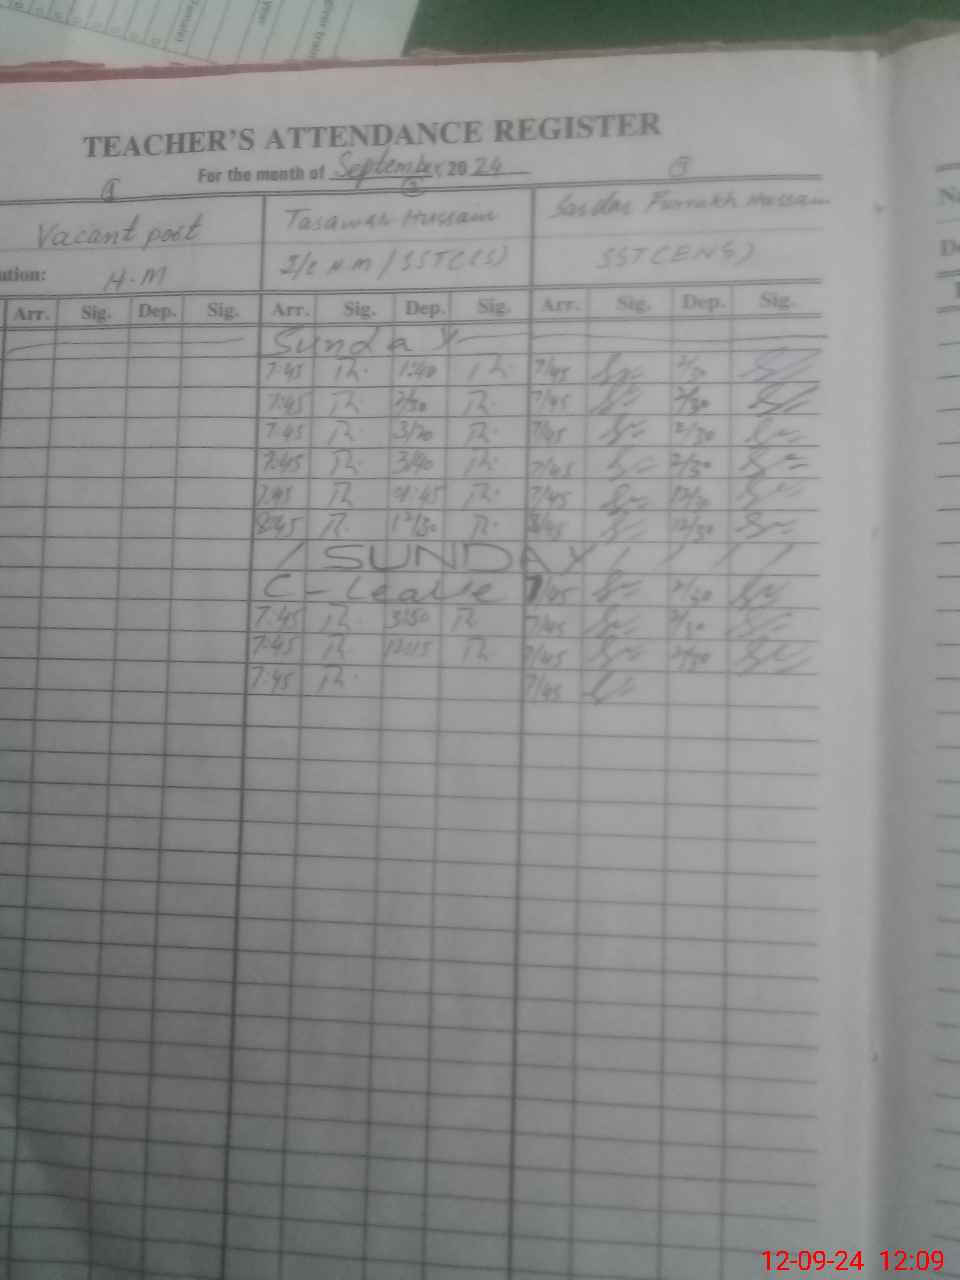 TEACHER'S ATTENDANCE REGISTER
For the month of September 2024
Vacant post Tasawar Hussain Sardar Furrakh Hussain
ution: H.M I/C H.M / SST(CS) SST(ENS)
Arr. Sig. Dep. Sig. Arr. Sig. Dep. Sig. Arr. Sig. Dep. Sig.
Sunday
7:45 1:40 7/45 2/30
7:45 2/30 7/45 2/30
7:45 3/20 7/45 2/30
7:45 3/40 7/45 2/30
7:45 01:45 7/45 12/30
8:45 12/30 8/45 12/30
SUNDAY
C-Leave 7/45 2/30
7:45 3:50 7/45 2/30
7:45 12:15 7/45 2/30
7:45 7/45
12-09-24 12:09